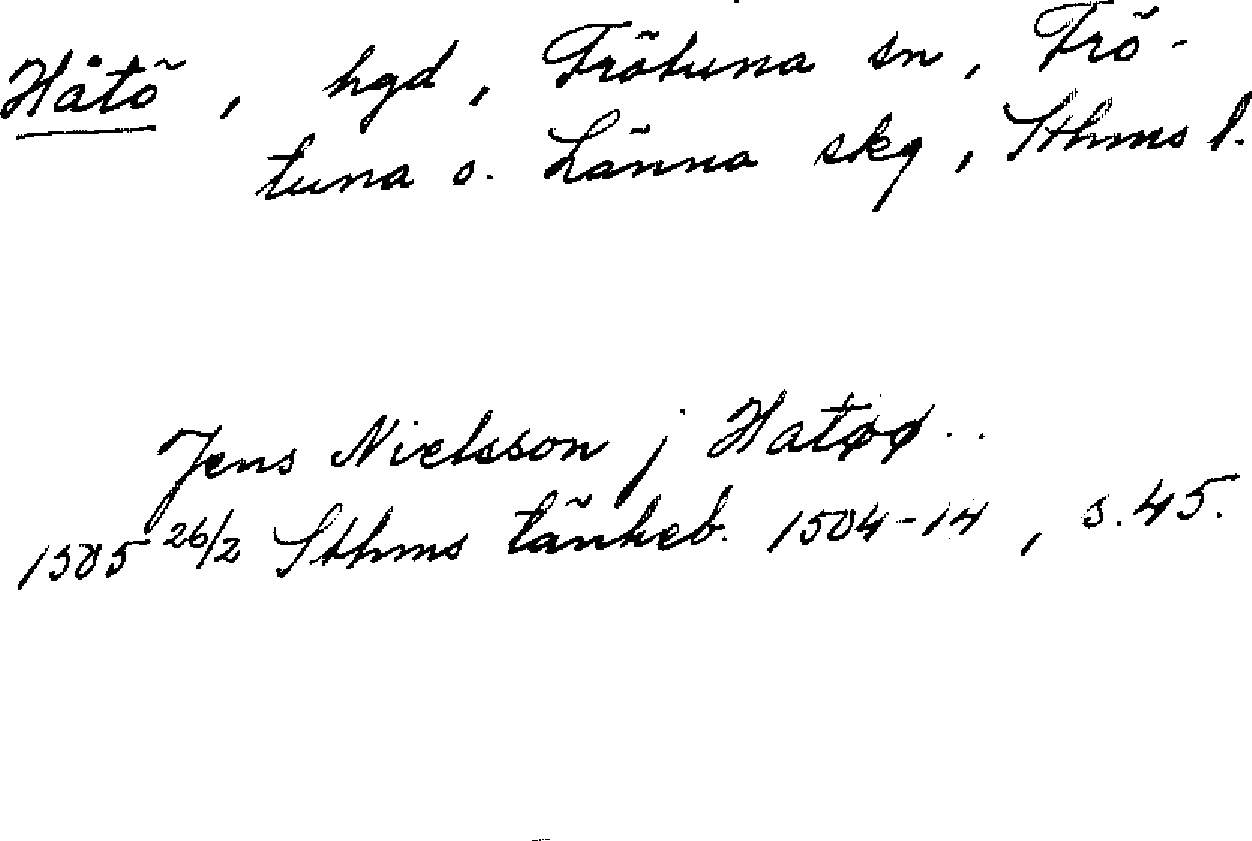 Håtö, hgd, Frötuna sn, Frö-
tuna o. Länna skg, Sthms l.
Jens Nielsson j Hatøø..
1505 26/2 Sthms tänkeb. 1504-14, s. 45.